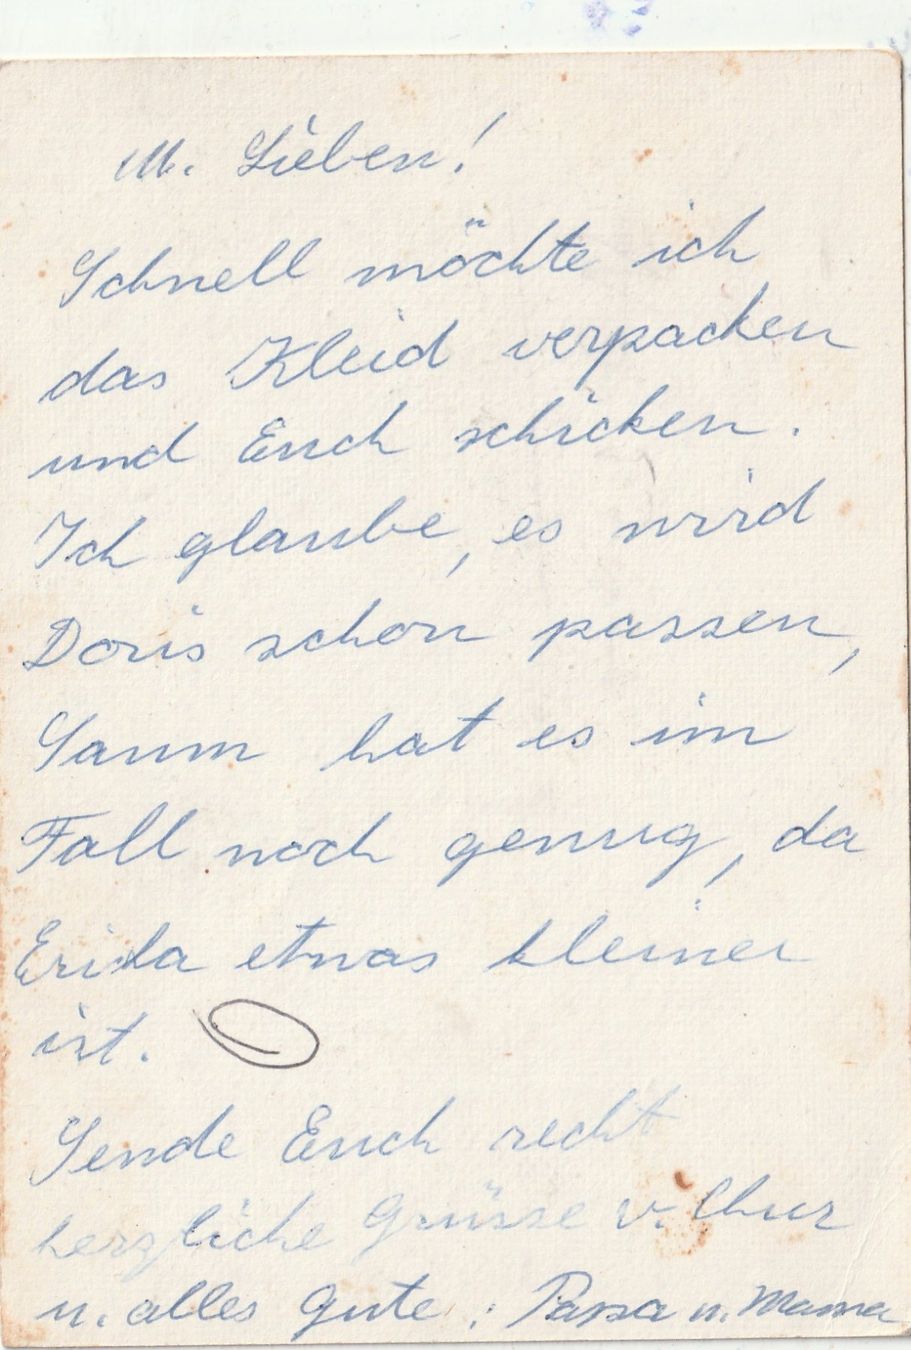 M. Lieben!
Schnell möchte ich
das Kleid verpacken
und Euch schicken.
Ich glaube, es wird
Doris schon passen,
Saum hat es im
Fall noch genug, da
Erika etwas kleiner
ist.
Sende Euch recht
herzliche Grüsse v. Chur
u. alles Gute, : Papa u. Mama